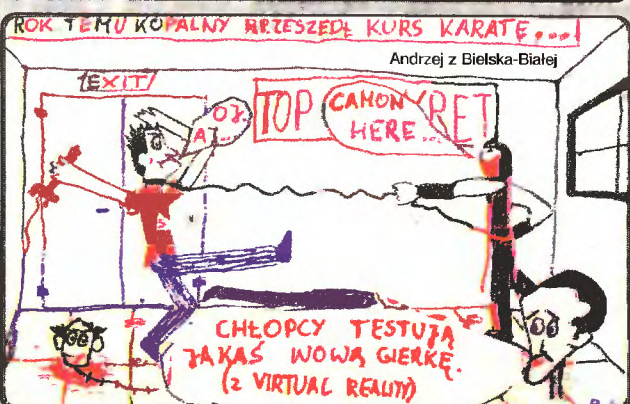 ROK TEMU KOPALNY PRZESZEDŁ KURS KARATE...!
Andrzej z Bielska-Białej
EXIT
OJ.
AJ...
TOP
CAMON
HERE...
RET
CHŁOPCY TESTUJĄ
JAKĄŚ NOWĄ GIERKĘ.
(z VIRTUAL REALITY)